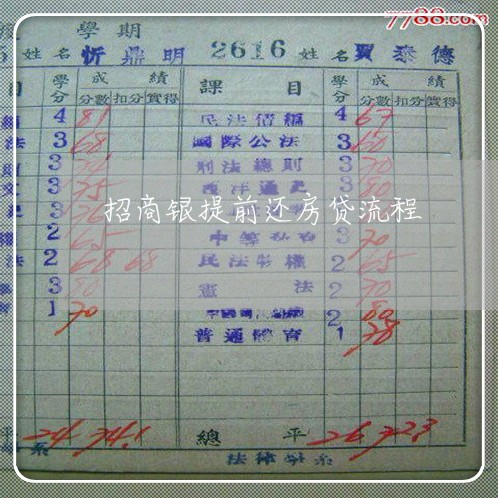 7788.com
學期
姓名 忻鼎明 2616 姓名 賈泰德
目 學分 成績 課目 學分 成績
分數 扣分 實得 分數 扣分 實得
4 81 民法債編 4 67
法 3 68 國際公法 3 60
3 刑法總則 3 70
3 75 西洋通史 3 80
3
招商银提前还房贷流程
2 65 3 70
法 2 68 68 民法物權 2 65
3 80 憲法 2 70
1 70 2 80
普通體育 1 78
平 24 74.1 總平 26 72.3
系 法律學系